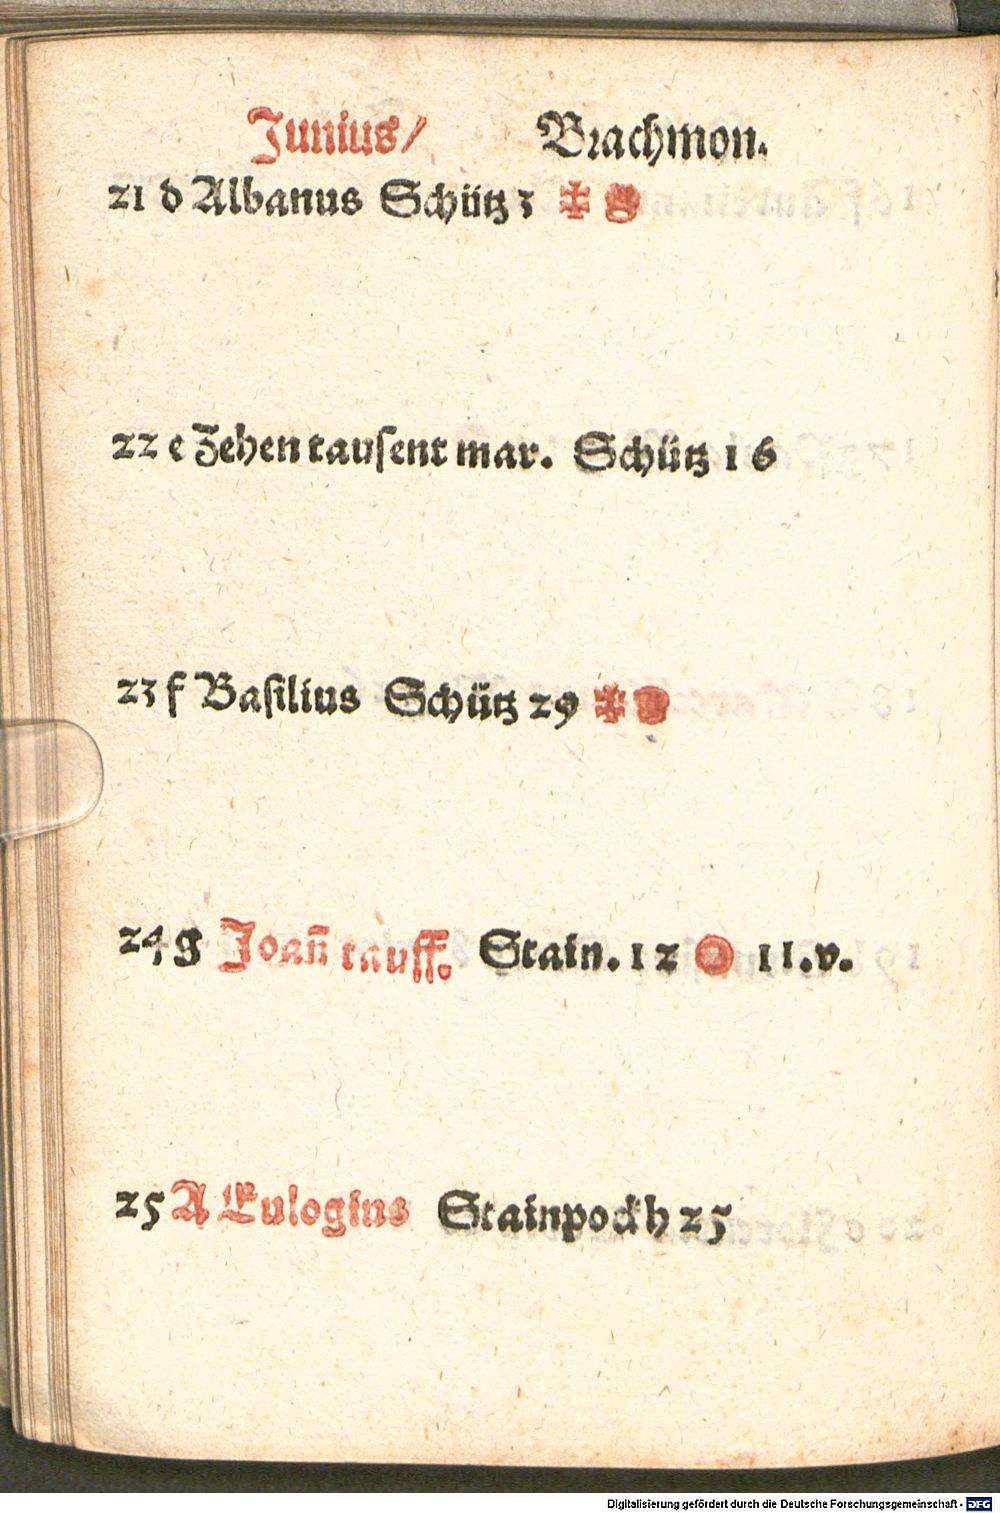 Junius/ Brachmon.
21 d Albanus Schütz 3
22 e Zehen tausent mar. Schütz 16
23 f Basilius Schütz 29
24 g Joañ tauff. Stain. 12 11.v.
25 A Eulogius Stainpockh 25
Digitalisierung gefördert durch die Deutsche Forschungsgemeinschaft - DFG